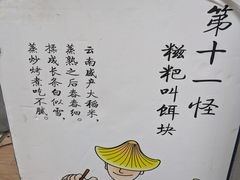 第十一怪
糍粑叫饵块
云南盛产大稻米，
蒸熟之后舂舂细。
揉成长条白似雪，
蒸炒烤煮吃不腻。